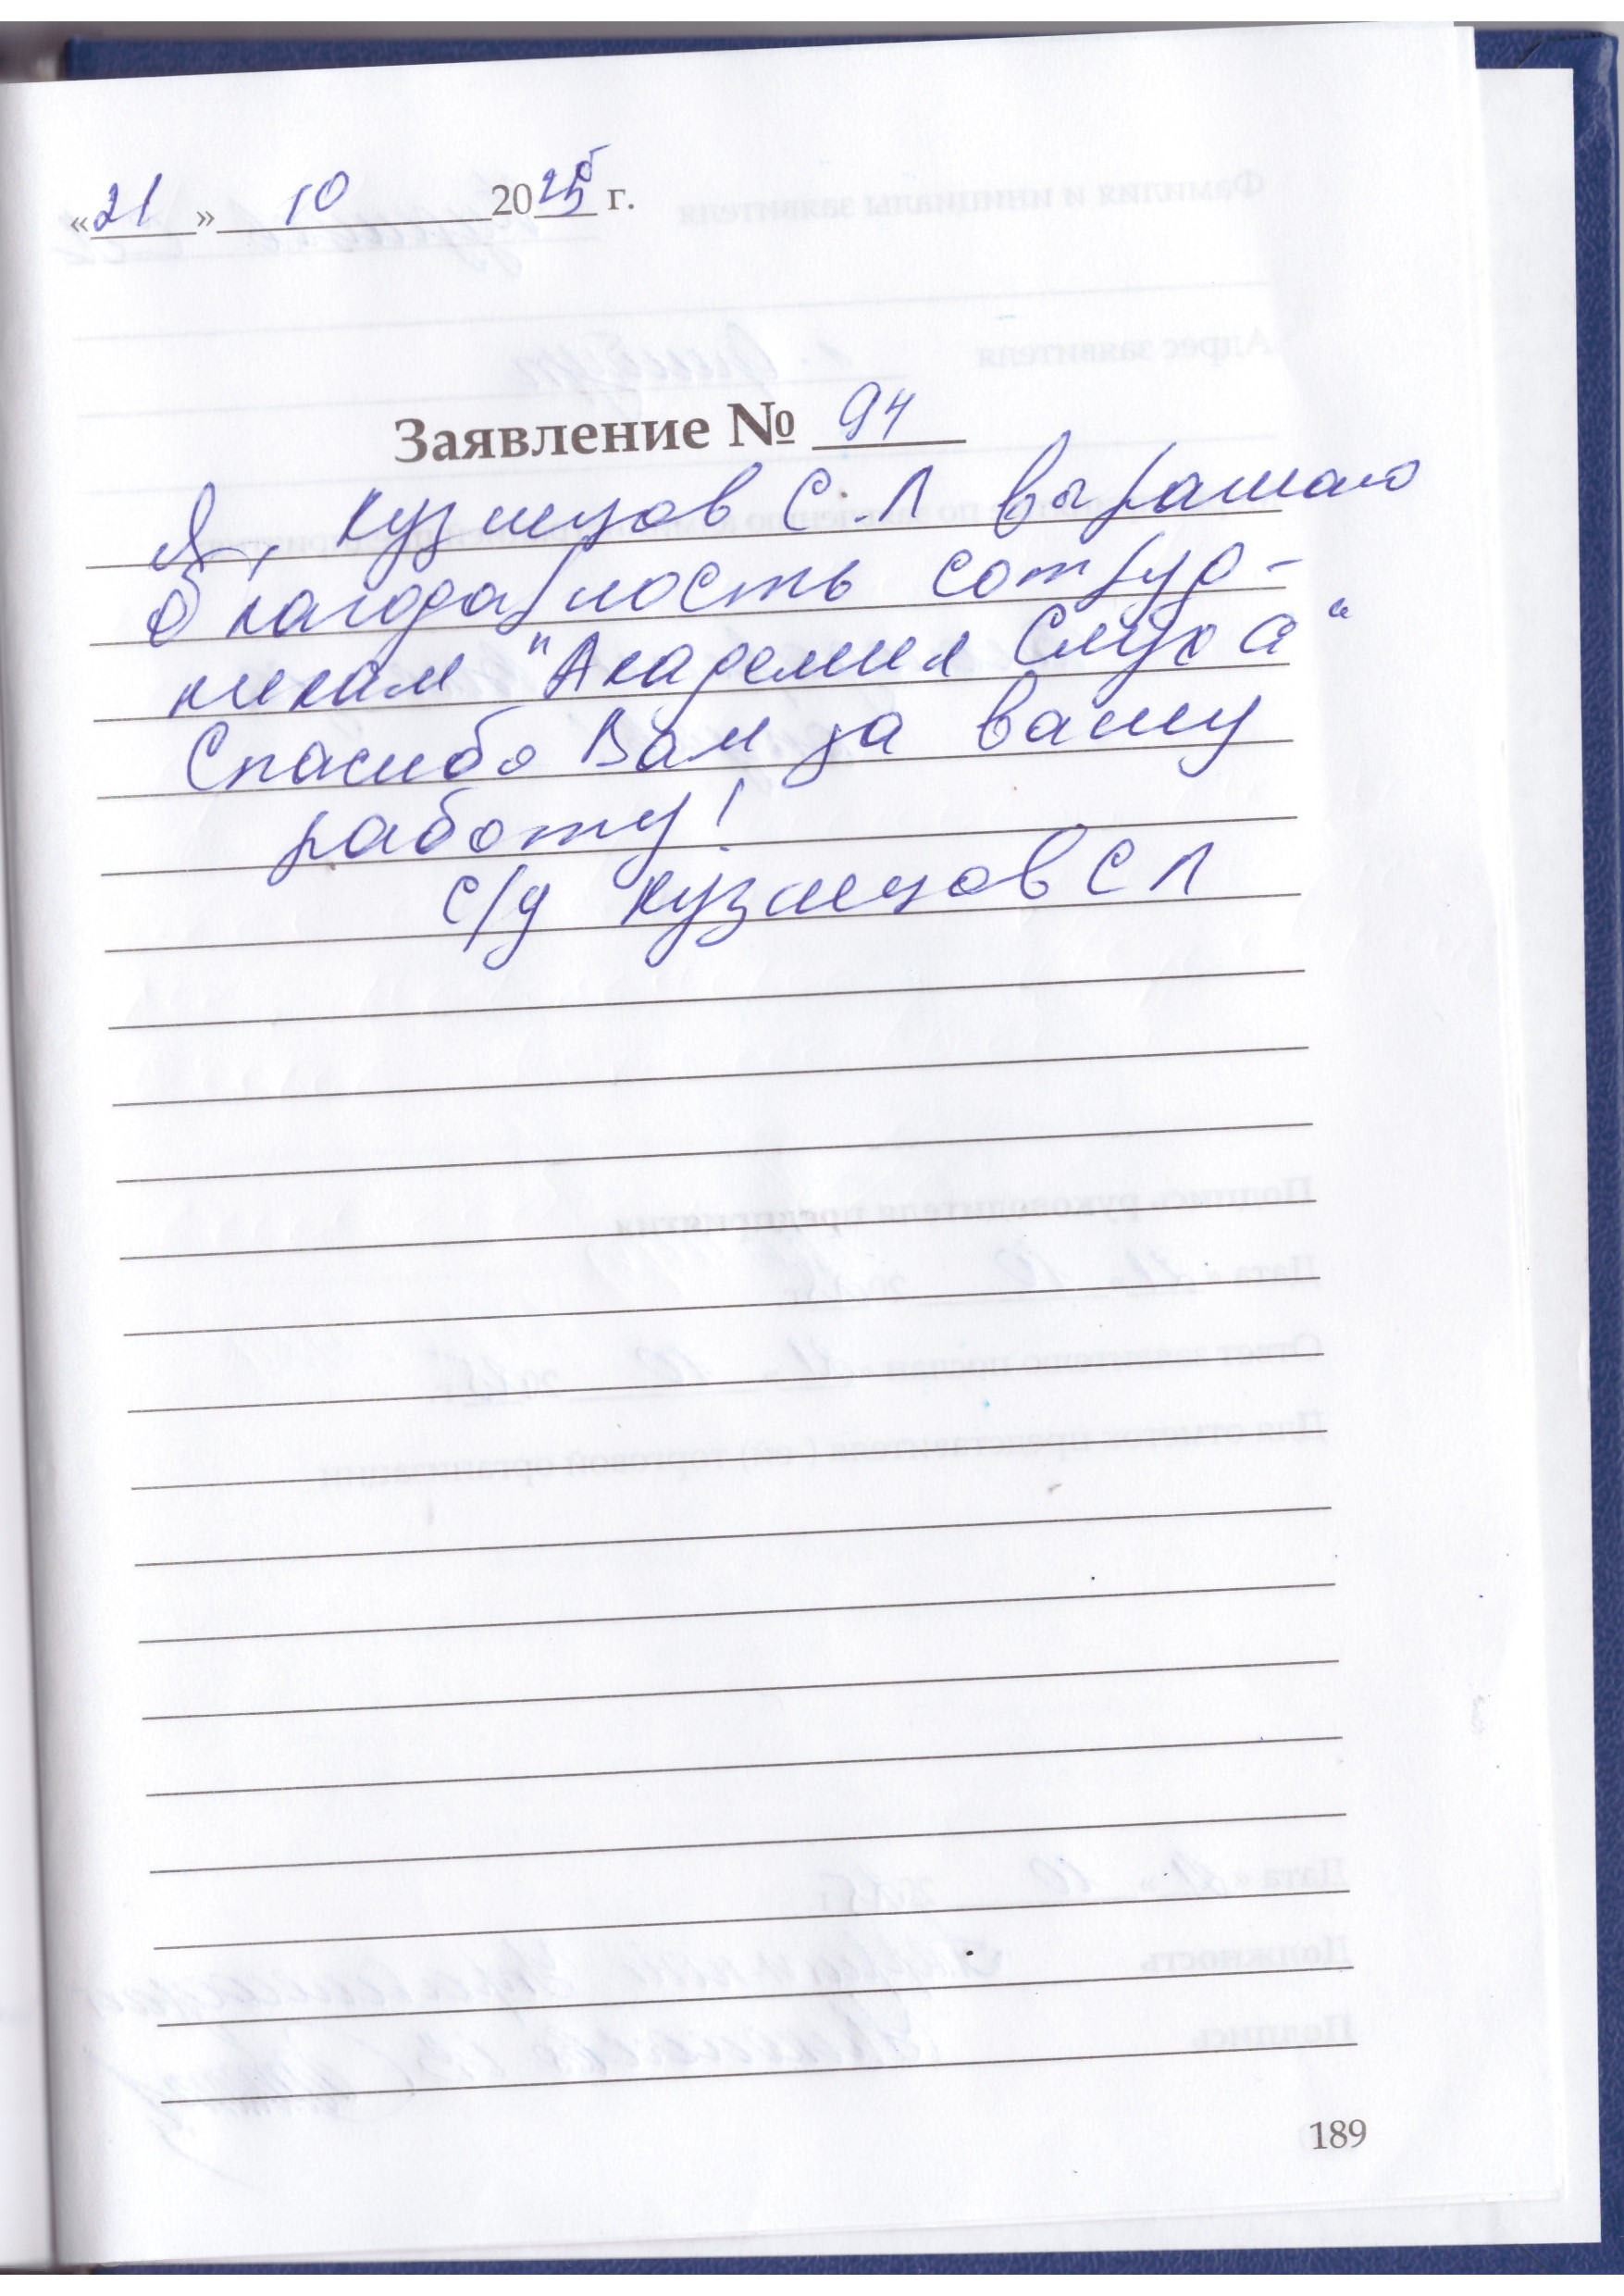 «21» 10 2025 г.
Заявление № 94
Я, Кузнецов С.Л выражаю
благодарность сотруд-
никам "Академия Слуха"
Спасибо Вам за вашу
работу!
с/д Кузнецов С Л
189